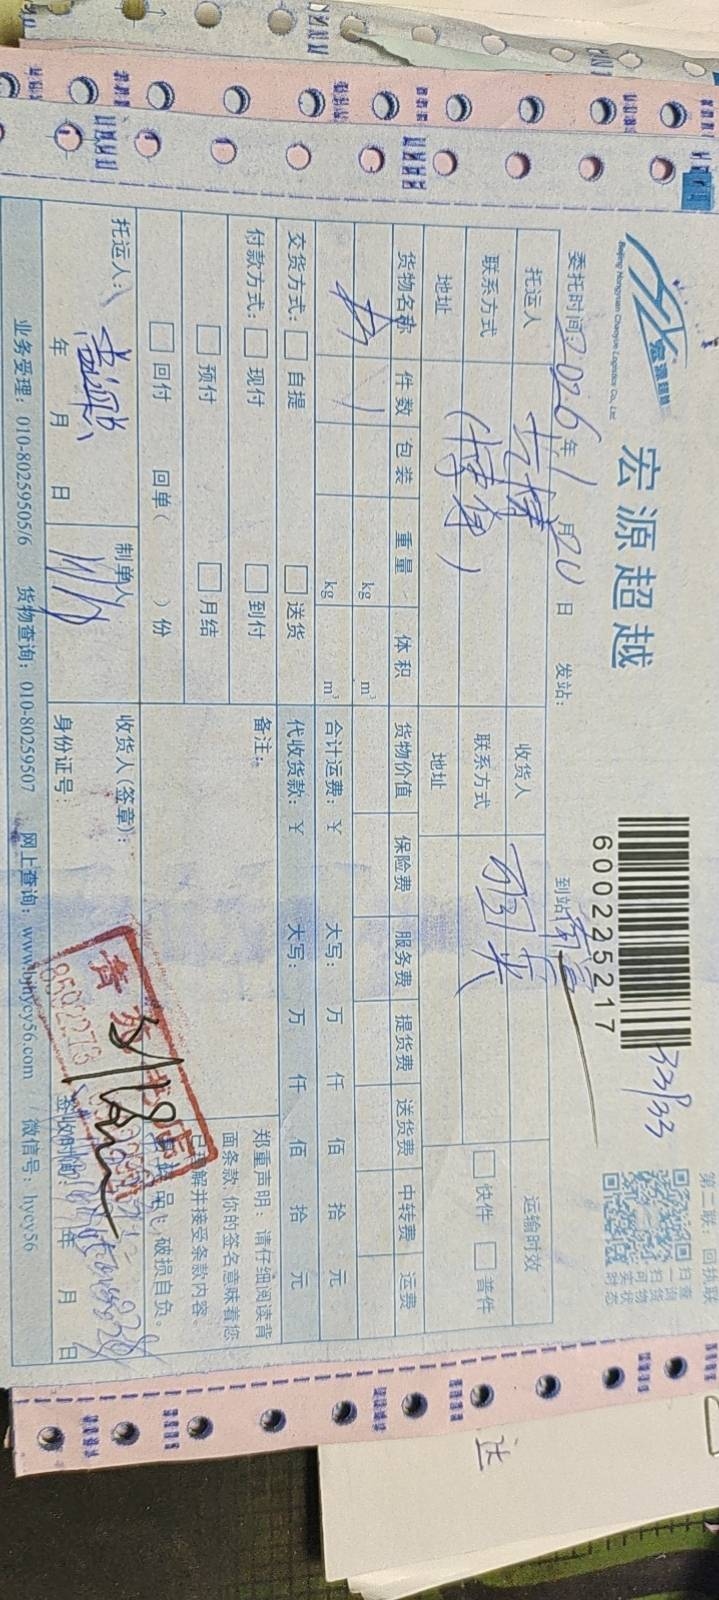 宏源超越
Beijing Hongyuan Chaoyue Logistics Co., Ltd.
宏源超越
600225217
33/33
第二联：回执联
扫一扫可查询货物实时状态
委托时间：2026年1月20日 发站： 到站：
托运人
收货人
运输时效
联系方式
联系方式
快件 普件
地址
地址
货物名称 件数 包装 重量 体积 货物价值 保险费 服务费 提货费 送货费 中转费 运费
1 kg m³
kg m³ 合计运费：¥ 大写： 万 仟 佰 拾 元
交货方式： 自提 送货 代收货款：¥ 大写： 万 仟 佰 拾 元
付款方式： 现付 到付 备注：
预付 月结
回付 回单（ ）份
郑重声明：请仔细阅读背
面条款，你的签名意味着您
已了解并接受条款内容。
破损自负。
托运人： 年 月 日
制单人
收货人（签章）：
身份证号：
签收时间： 年 月 日
业务受理：010-80259505/6 货物查询：010-80259507 网上查询：www.bjhycy56.com 微信号：hycy56